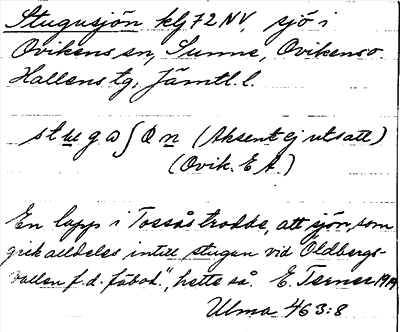 Stugusjön klj 72 NV, sjö i
Ovikens sn, Sunne, Ovikens o.
Hallens tg, Jämtl. l.
stu̲gəʃȯn̲ (Aksent ej utsatt)
(Ovik. E A.)
En lapp i Tossås trodde, att sjön, som
gick alldeles intill stugan vid "Oldbergs-
vallen f.d. fäbod.", hette så. E. Terner 1919
Ulma 463:8